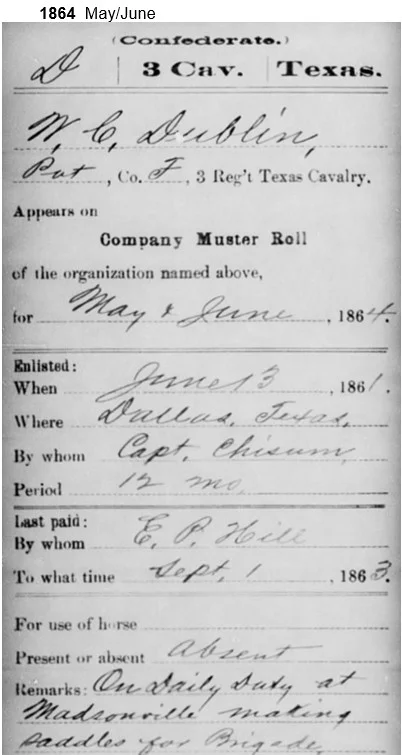 1864 May/June
(Confederate.)
D | 3 Cav. | Texas.
W. C. Dublin,
Pvt, Co. F, 3 Reg't Texas Cavalry.
Appears on
Company Muster Roll
of the organization named above,
for May & June, 1864.
Enlisted:
When June 13, 1861.
Where Dallas, Texas.
By whom Capt. Chisum,
Period 12 mo.
Last paid:
By whom E. P. Hill
To what time Sept. 1, 1863.
For use of horse
Present or absent Absent
Remarks: On Daily Duty at
Madsonville making
saddles for Brigade